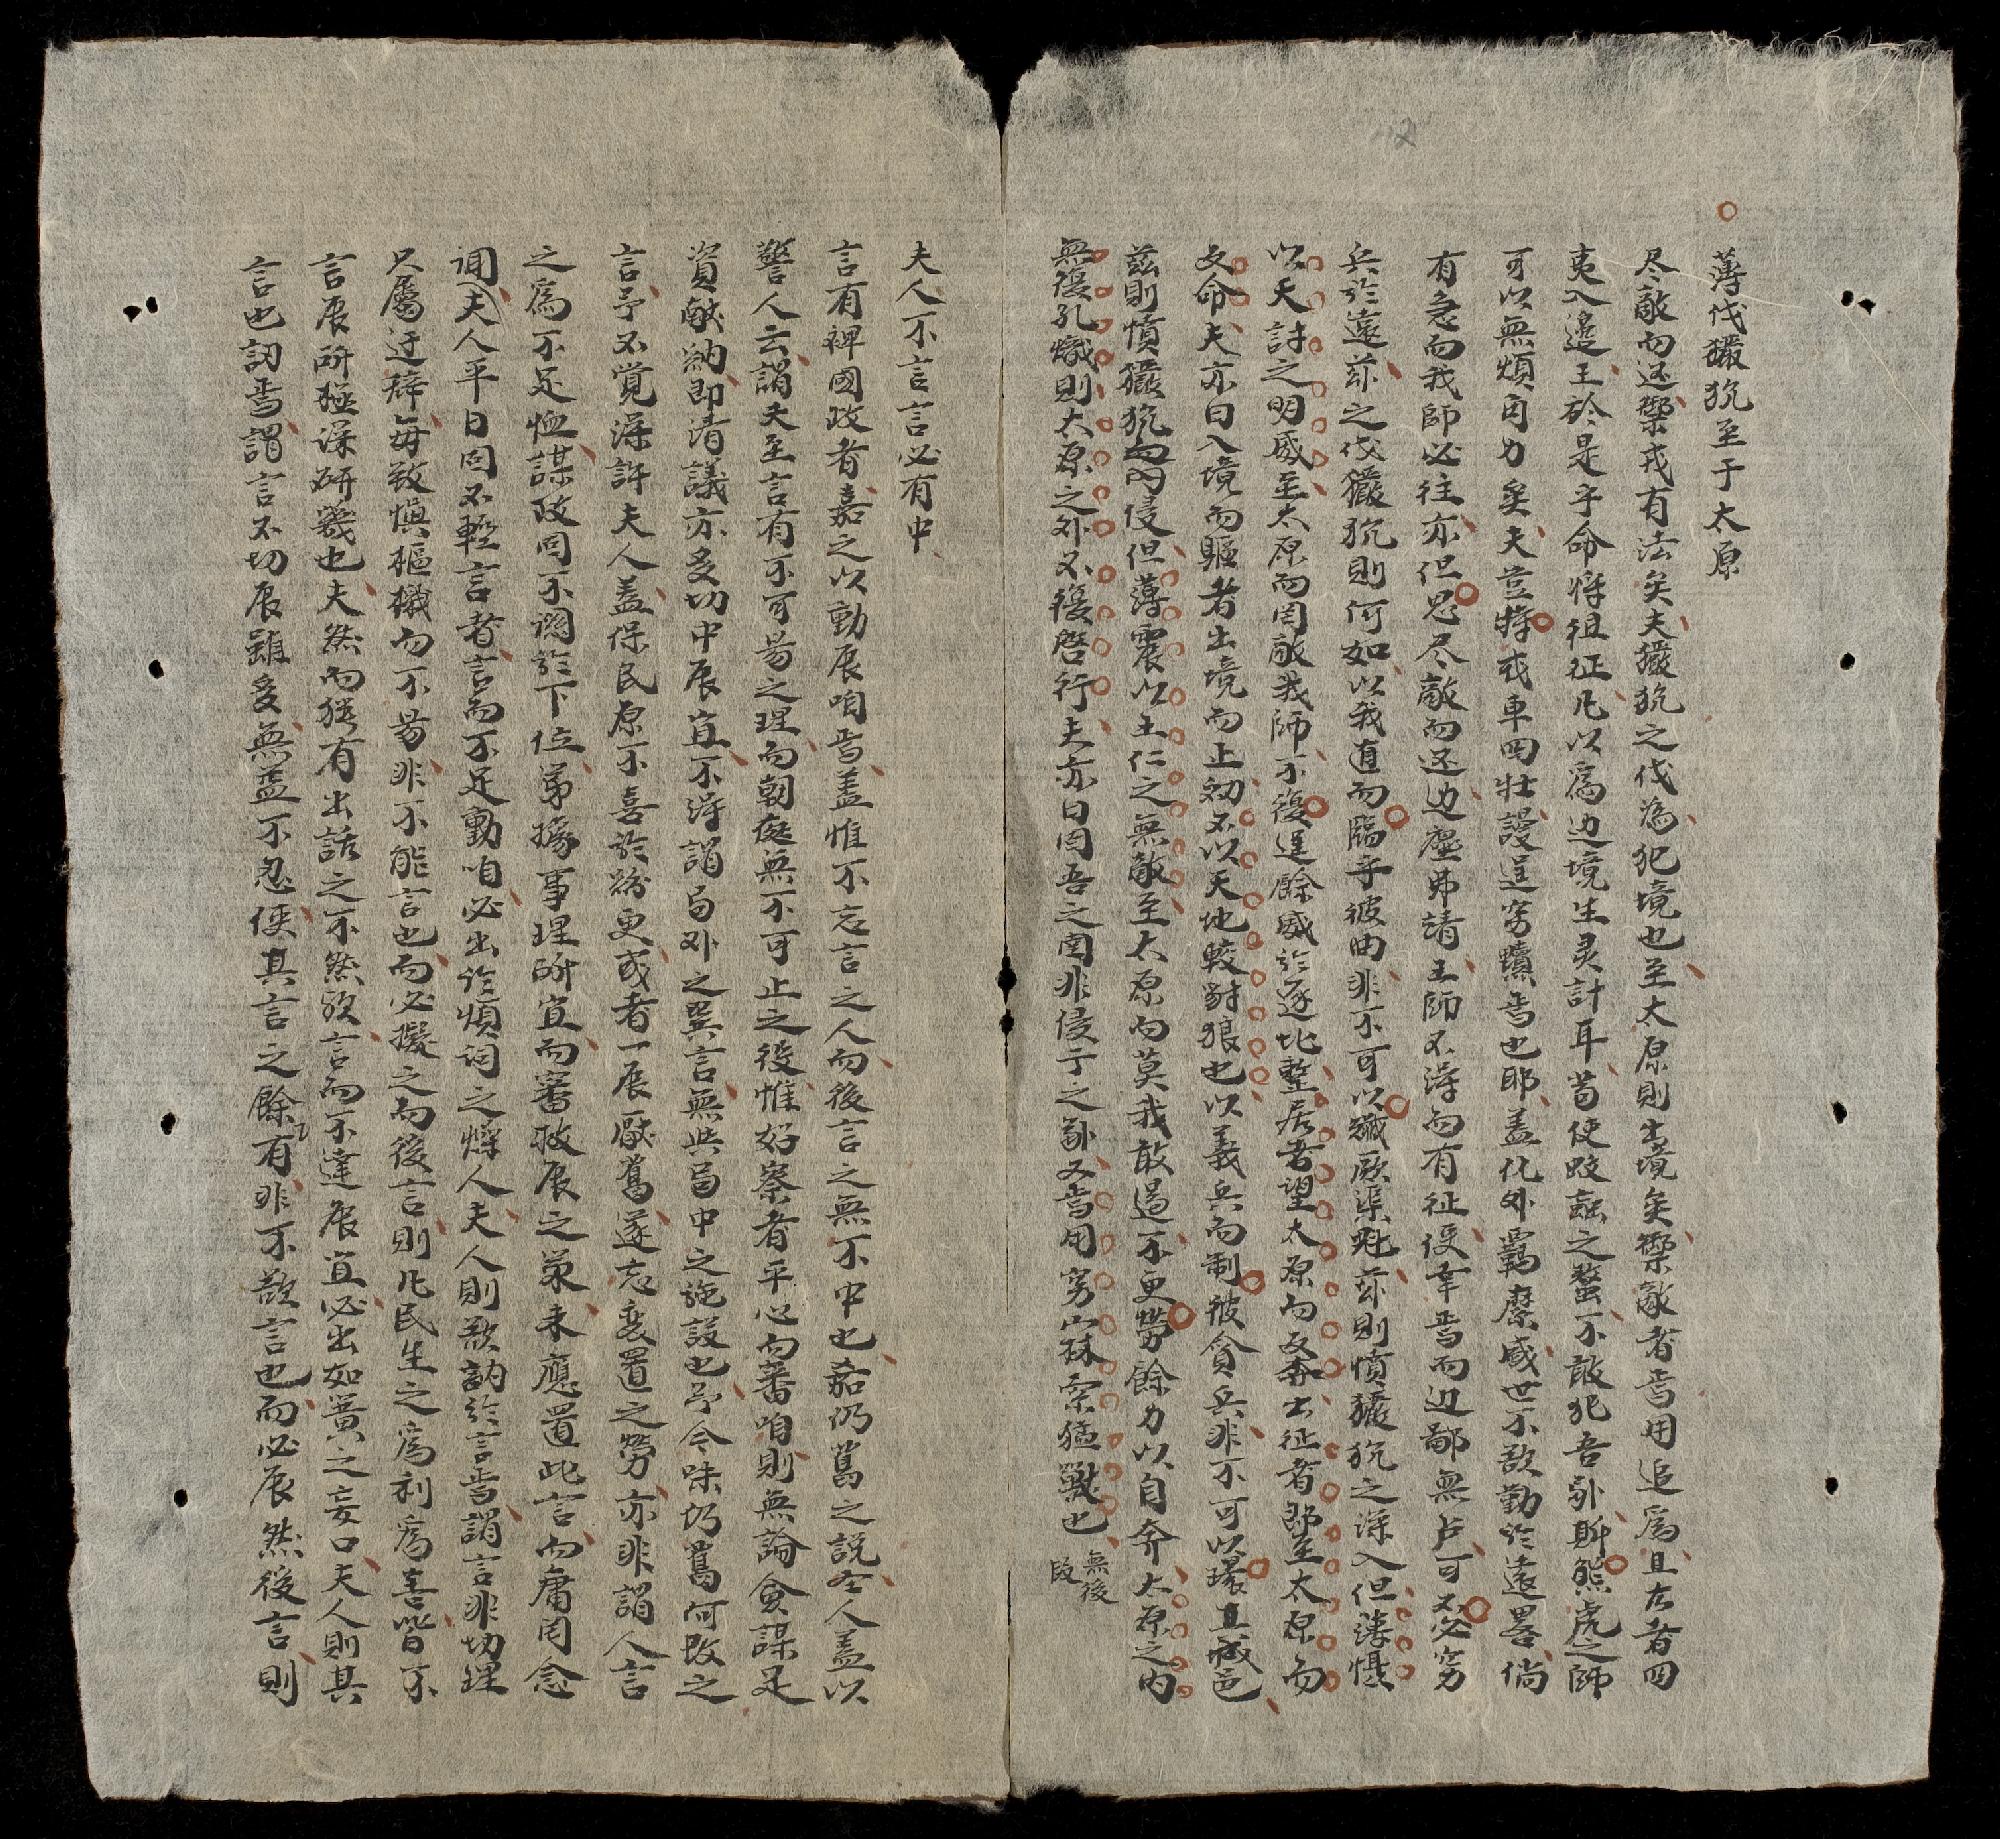 薄伐玁狁至于太原
尽敵而还禦戎有法矣夫玁狁之伐為犯境也至太原則出境矣禦敵者焉用追為且古者四
夷入邊王於是乎命将徂征凡以為边境生灵計耳苟使蛟之螫不敢犯吾卧熊虎之師
可以無煩再力矣夫豈特戎車四壮謾逞窮黷焉也耶盖化外羈縻盛世不欲勤於遠畧倘
有急而我師必往亦但思尽敵而还边塵弗請王師不得而有征便幸焉而边鄙無虞可不必窮
兵於遠茲之伐玁狁則何如以我直而臨乎彼曲非不可以殲厥渠魁茲則憤玁狁之深入但薄愠
以天討之明威至太原而罔敵我師不復逞餘威於逐北整居者望太原而反奔出征者即至太原而
文命夫亦曰入境而驅者出境而止初不以天地較豺狼也以義兵而制彼貪兵非不可以壞其城邑
茲則憤玁狁而內侵但薄震以王仁之無敵至太原而莫我敢遏不更勞餘力以自奔太原之內
無復孔熾則太原之外又不復啓行夫亦曰固吾之圉非侵于之又焉用窮山林索猛獸也 無後
段
夫人不言言必有中
言有裨國政者嘉之以動展咱焉盖惟不忘言之人而後言之無不中也茲仍舊之說圣人盖以
警人云謂天至言有不可易之理而朝廷無不可止之役惟好察者平心而審咱則無論僉謀足
資献納即清議亦多切中展宜不得謂局外之巽言無與局中之施設也予今味仍舊何改之
言予不覚深許夫人盖保民原不喜於紛更或者一展厭舊遂忘变置之勞亦非謂人言
之為不足恤謀政罔不詢於下位第據事理所宜而審救展之策未應置此言而庸罔念
聞夫人平日罔不輕言者言而不足動咱必出於煩詞之燥人夫人則欲訥於言焉謂言非切理
只屬迂辞每致慎樞機而不易非不能言也而必擬之而後言則凡民生之為利為害皆不
言展所極深研幾也夫然而猶有出話之不然致言而不達展宜必出如簧之妄口夫人則其
言也訒焉謂言不切展雖多無益不忍使其言之餘有非不欲言也而必展然後言則